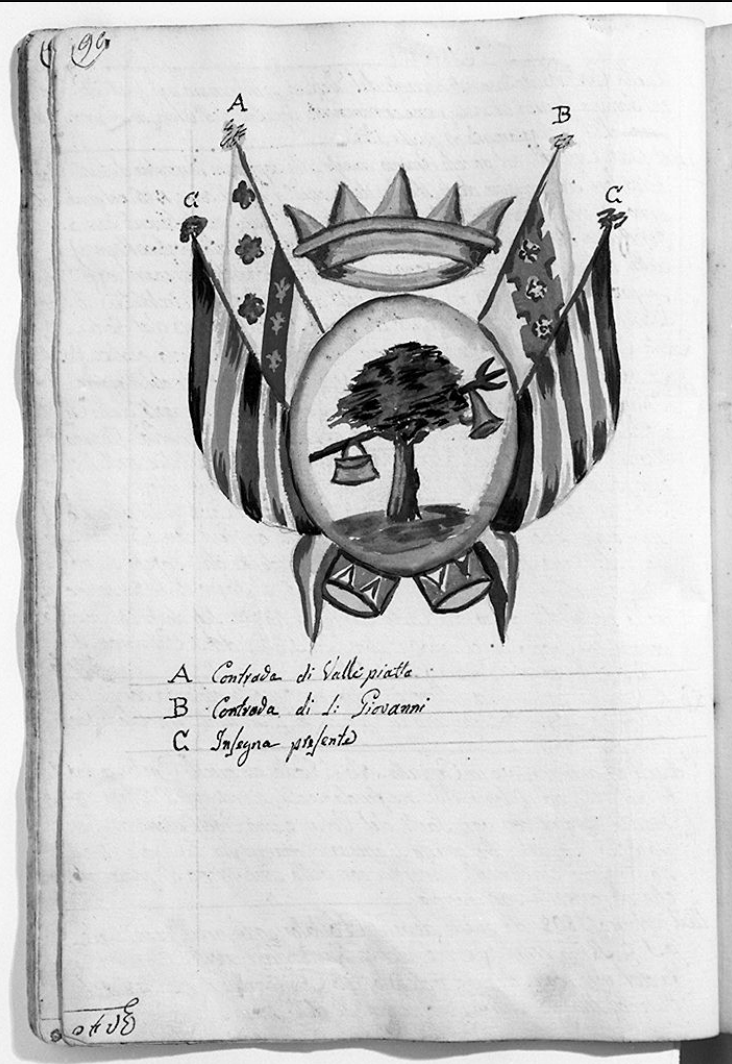 96
A
B
C
C
A Contrada di Vallepiatta
B Contrada di S: Giovanni
C Insegna presente